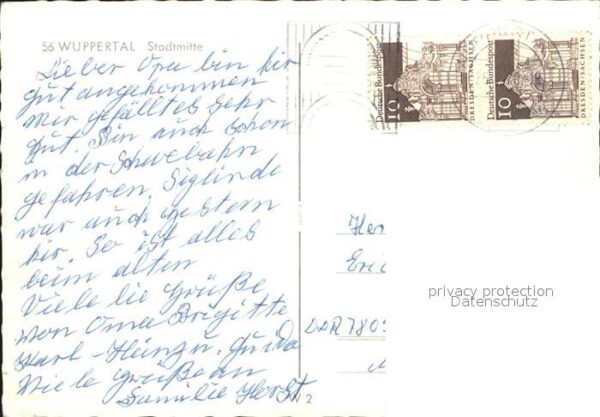 56 WUPPERTAL Stadtmitte
Lieber Opa bin hir
gut angekommen
mir gefälltes sehr
gut. Bin auch schon
in der Schwebahn
gefahren. Siglinde
war auch gestern
hir. So ist alles
beim alten
Viele lie Grüße
von Oma Brigitte
Karl-Heinz u. Guido
Viele grüße an
Familie Horst
Deutsche Bundespost
10
DRESDEN-SACHSEN
Deutsche Bundespost
10
DRESDEN-SACHSEN
Her
Eric
privacy protection
Datenschutz
DDR 7809
2